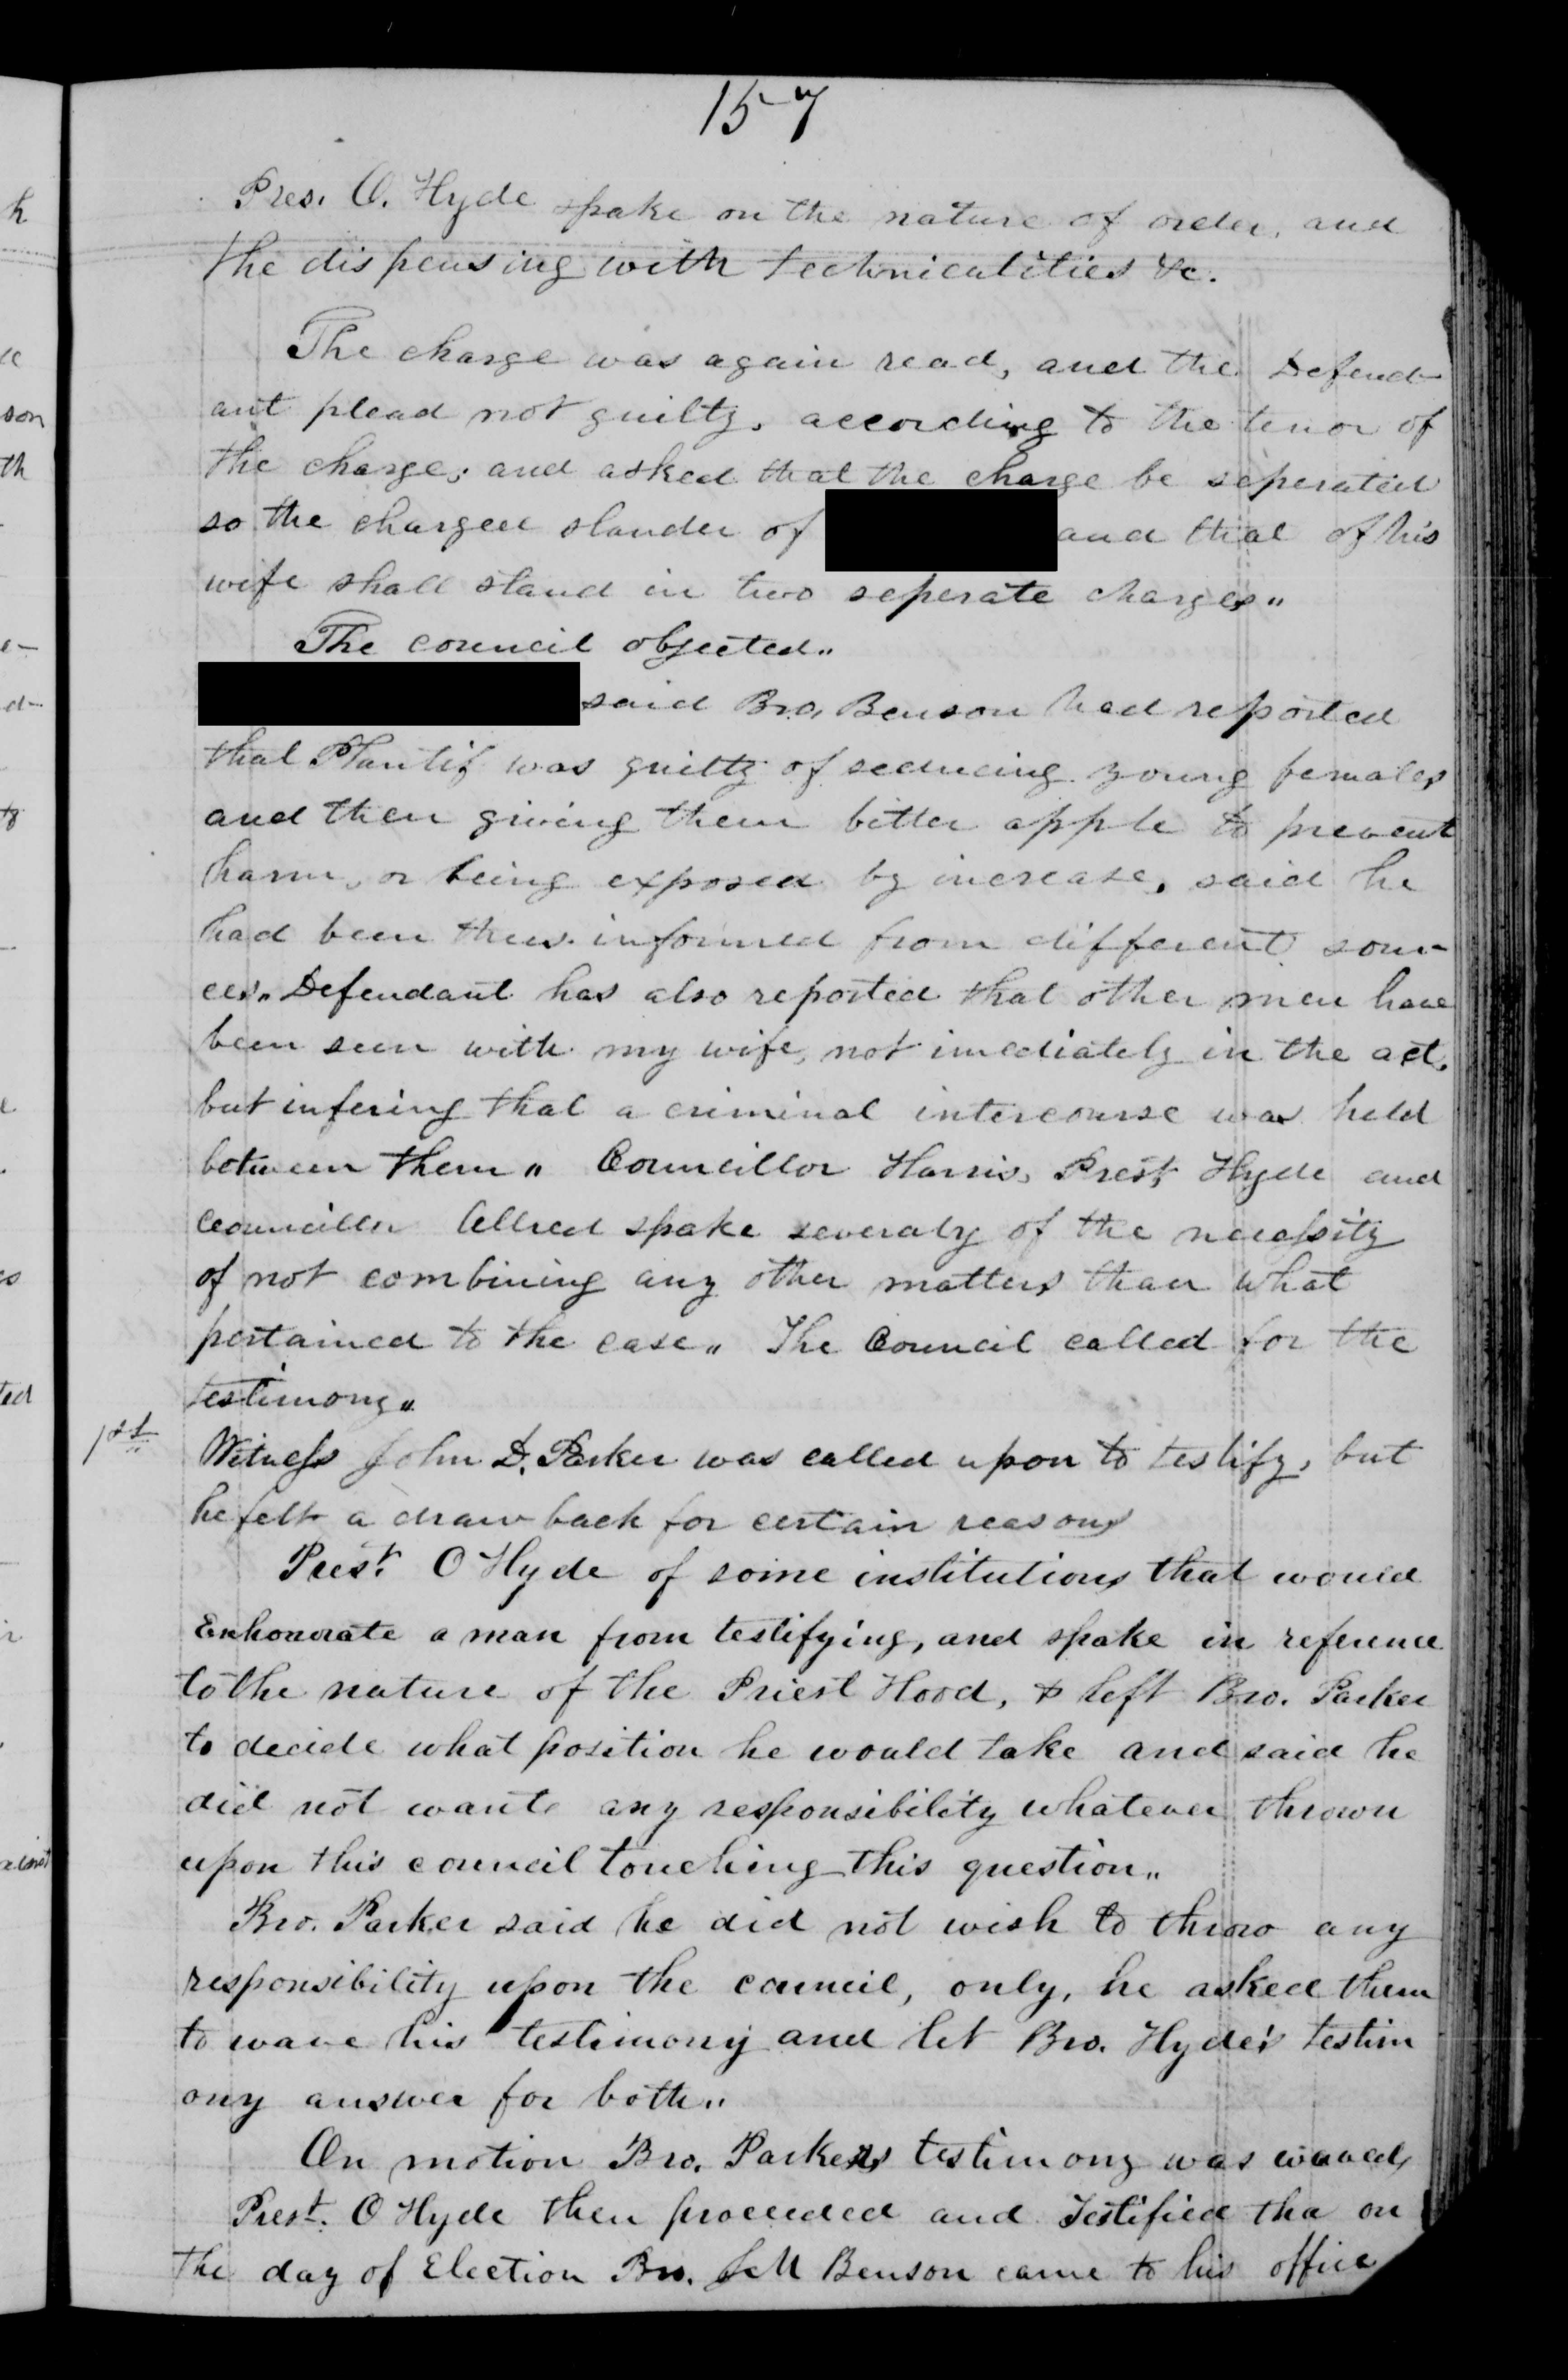 157
Pres. O. Hyde spake on the nature of order, and
the dispensing with technicalities &c.
The charge was again read, and the Defend-
ant plead not guilty, according to the tenor of
the charge; and asked that the charge be seperated
so the charged slander of and that of his
wife shall stand in two seperate charges"
The council objected"
said Bro. Benson had reported
that Plantif was guilty of seducing young females
and then giving them bitter apple to prevent
harm, or being exposed by increase, said he
had been thus informed from different sour-
ces" Defendant has also reported that other men have
been seen with my wife, not imediately in the act,
but infering that a criminal intercourse was held
between them" Councillor Harris, Prest Hyde and
Councillor Allred spake severaly of the necessity
of not combining any other matters than what
pertained to the case" The Council called for the
testimony"
1st Witness John D. Parker was called upon to testify, but
he felt a draw back for certain reasons
Prest. O Hyde of some institutions that would
Exhonorate a man from testifying, and spake in reference
to the nature of the Priest Hood, & left Bro. Parker
to decide what position he would take and said he
did not want any responsibility whatever thrown
upon this council touching this question"
Bro. Parker said he did not wish to throw any
responsibility upon the council, only, he asked them
to wave his testimony and let Bro. Hyde's testim
ony answer for both"
On motion Bro. Parkers testimony was waved,
Prest. O Hyde then proceeded and Testified tha on
the day of Election Bro. M Benson came to his office